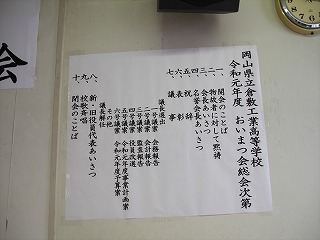 岡山県立倉敷工業高等学校
令和元年度 おいまつ会総会次第
一、開会のことば
二、物故者に対して黙祷
三、会長あいさつ
四、名誉会長あいさつ
五、祝辞
六、表彰
七、議事
議長選出
一号議案 会務報告
二号議案 会計報告
三号議案 監査報告
四号議案 役員改選
五号議案 令和元年度事業計画案
六号議案 令和元年度予算案
その他
議長解任
八、新・旧役員代表あいさつ
九、校歌斉唱
十、閉会のことば
会